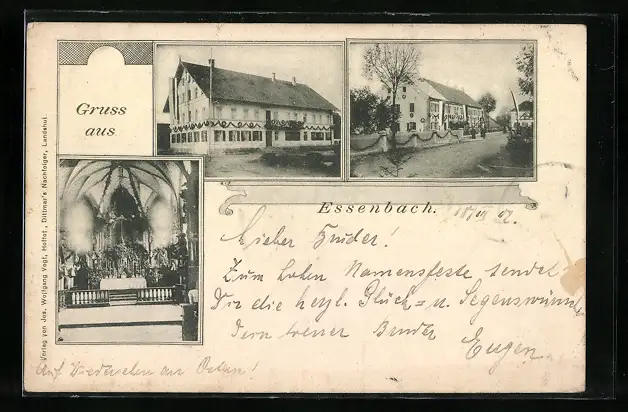 Gruss
aus
Essenbach.
Lieber Bruder!
Zum hohen Namensfeste sendet
Dir die herzl. Glück= u. Segenswünsche
Dein treuer Bruder
Eugen
Auf Wiedersehen an Ostern!
Verlag von Jos. Wolfgang Vogt, Hoflief., Dittmar's Nachfolger, Landshut.